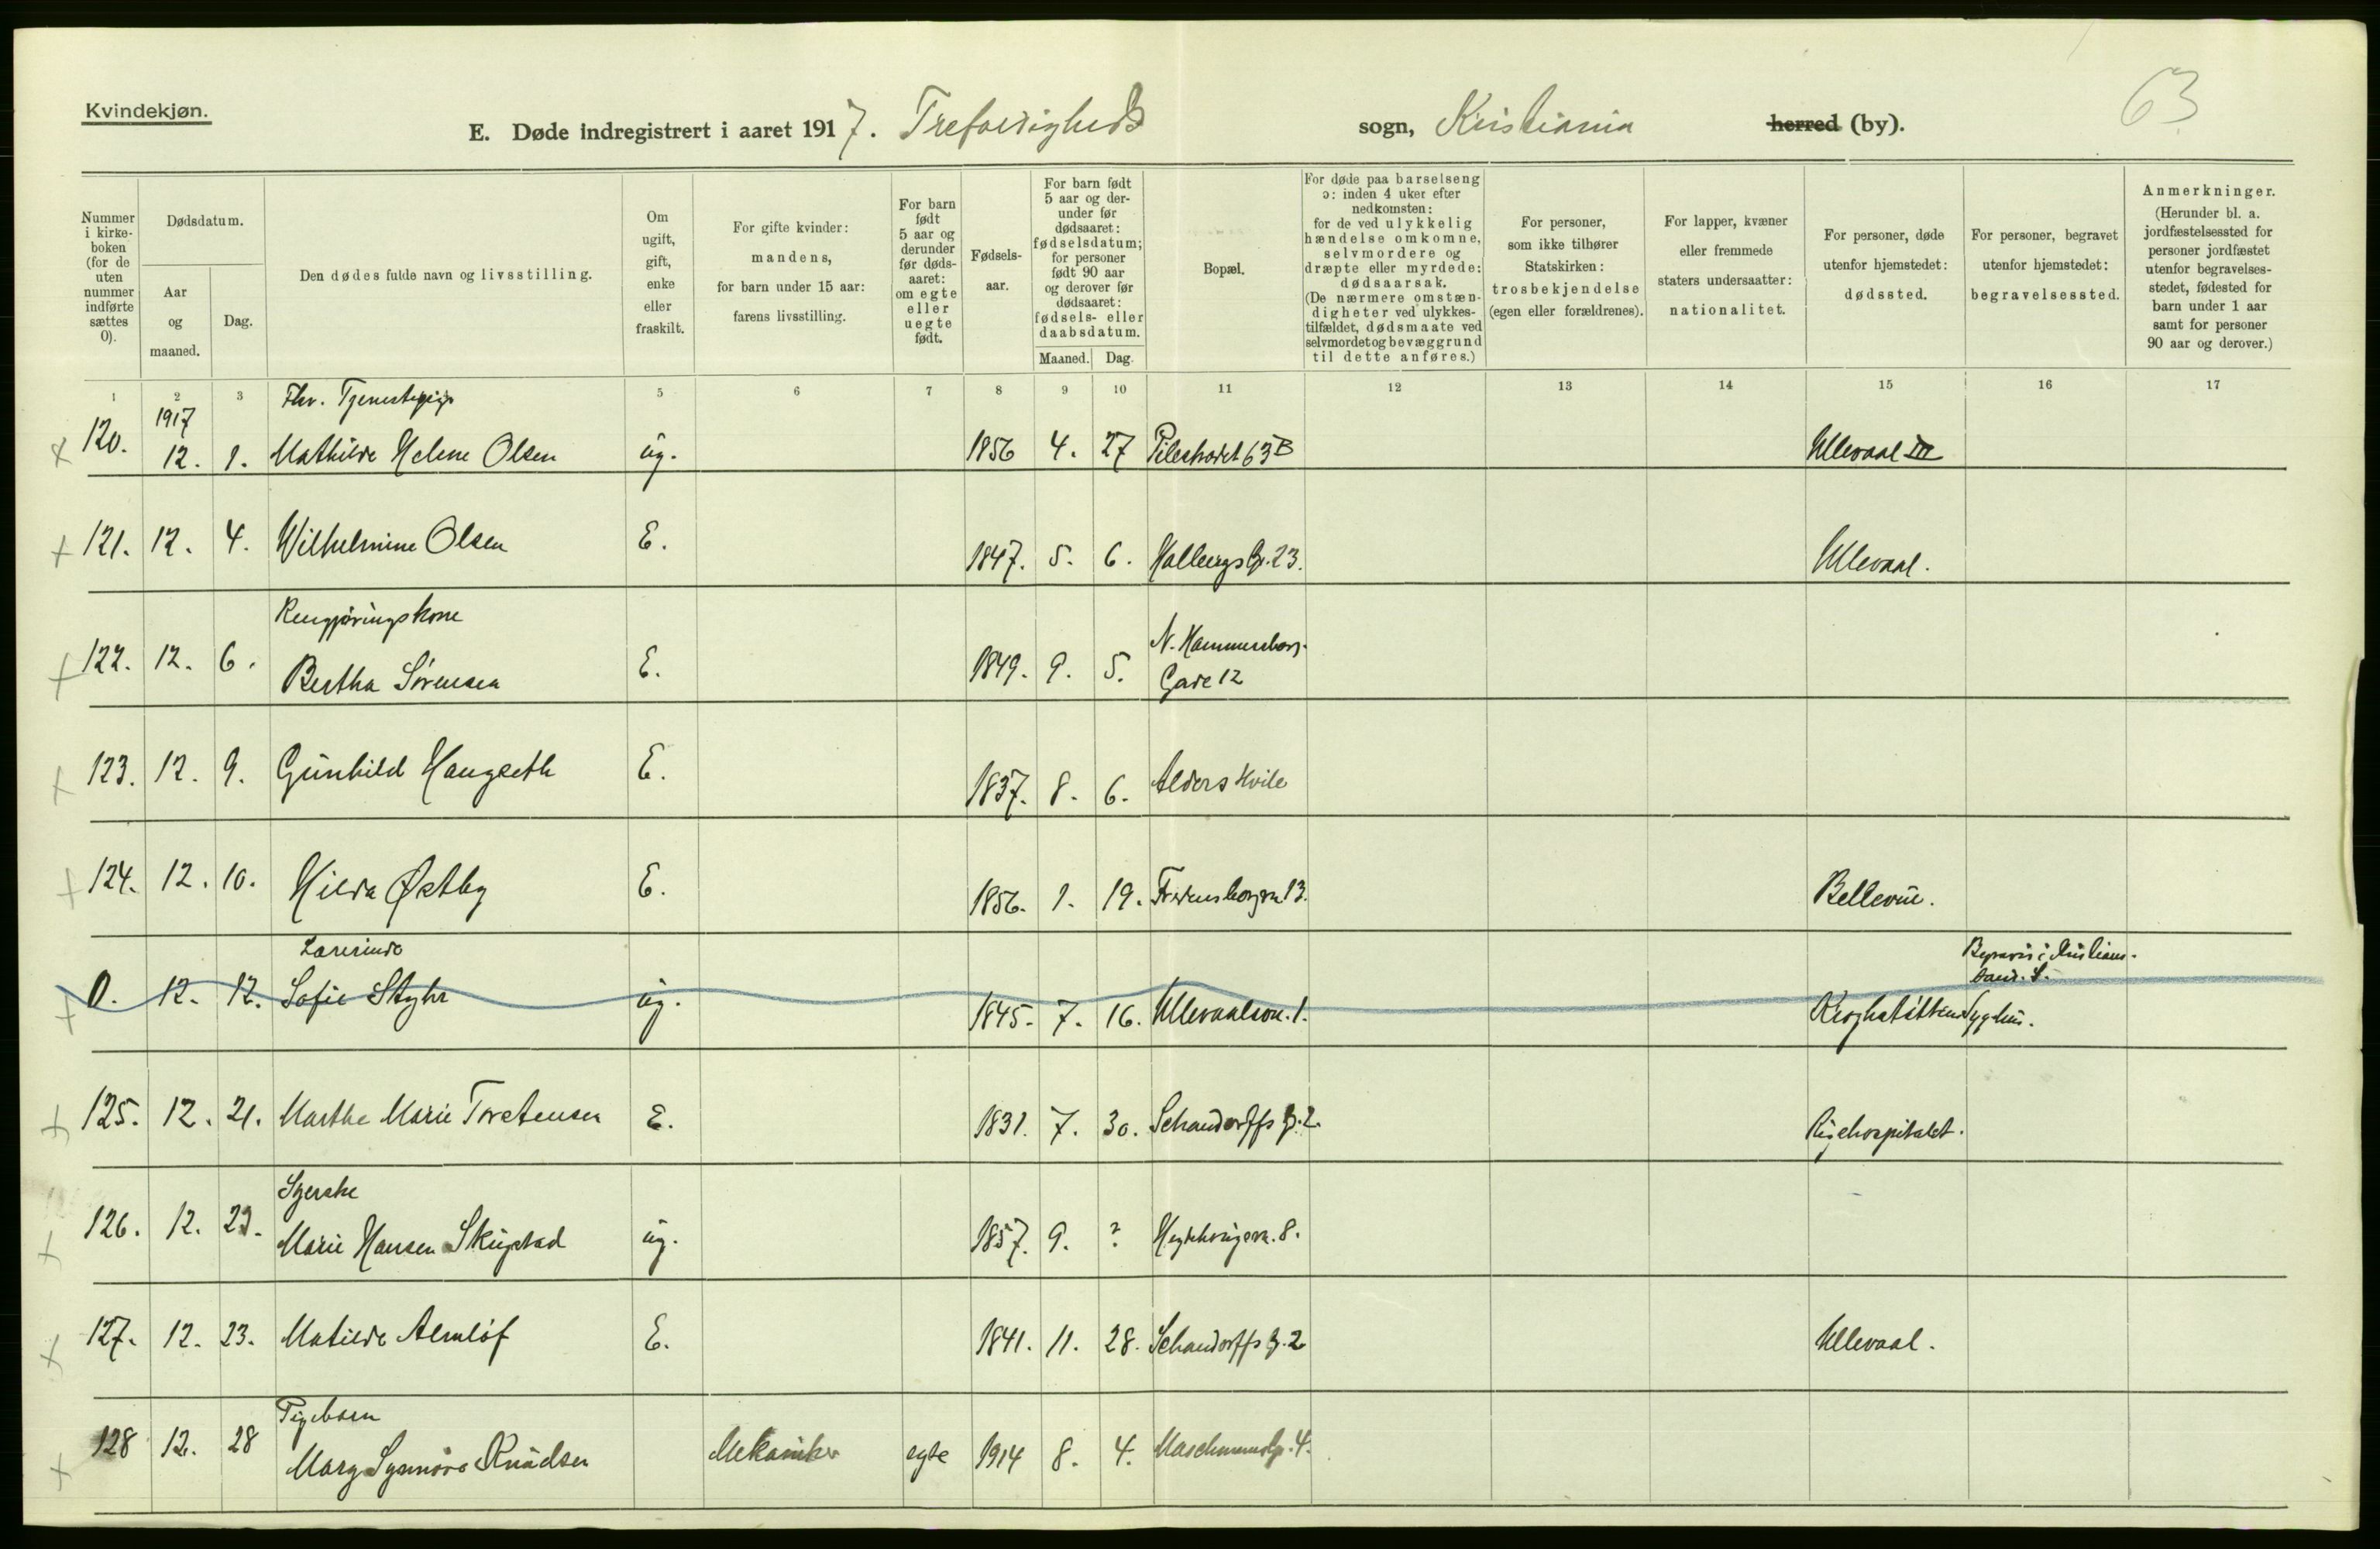 Kvindekjøn.
E. Døde indregistrert i aaret 1917. Trefoldigheds sogn, Kristiania herred (by).
63
Nummer i kirkeboken (for de uten nummer indførte sættes 0).
Dødsdatum.
Aar og maaned.
Dag.
Den dødes fulde navn og livsstilling.
Om ugift, gift, enke eller fraskilt.
For gifte kvinder: mandens, for barn under 15 aar: farens livsstilling.
For barn født 5 aar og derunder før dødsaaret: om egte eller uegte født.
Fødselsaar.
For barn født 5 aar og derunder før dødsaaret: fødselsdatum; for personer født 90 aar og derover før dødsaaret: fødsels- eller daabsdatum.
Maaned. Dag.
Bopæl.
For døde paa barselseng ɔ: inden 4 uker efter nedkomsten: for de ved ulykkelig hændelse omkomne, selvmordere og dræpte eller myrdede: dødsaarsak. (De nærmere omstændigheter ved ulykkestilfældet, dødsmaate ved selvmordet og bevæggrund til dette anføres.)
For personer, som ikke tilhører Statskirken: trosbekjendelse (egen eller forældrenes).
For lapper, kvæner eller fremmede staters undersaatter: nationalitet.
For personer, døde utenfor hjemstedet: dødssted.
For personer, begravet utenfor hjemstedet: begravelsessted.
Anmerkninger. (Herunder bl. a. jordfæstelsessted for personer jordfæstet utenfor begravelsesstedet, fødested for barn under 1 aar samt for personer 90 aar og derover.)
1 2 3 5 6 7 8 9 10 11 12 13 14 15 16 17
Fhv. Tjenestepige
1917
120. 12. 1. Mathilde Helene Olsen ug. 1856 4. 27 Pilestrædet 63B Ullevaal III
121. 12. 4. Wilhelmine Olsen E. 1847. 5. 6. Hallings G. 23. Ullevaal.
Rengjøringskone
N. Hammersborg.
122. 12. 6. Bertha Sørensen E. 1849. 9. 5. Gade 12
123. 12. 9. Gunhild Haugseth E. 1837. 8. 6. Alders Hvile
124. 12. 10. Hilda Østby E. 1856. 1. 19. Fredensborgvn 13. Bellevue.
Lærerinde
Begravet i Kristiansand. S.
0. 12. 12. Sofie Styhr ug. 1845. 7. 16. Ullevaalsvn. 1. Kroghstøttens Sygehus.
125. 12. 21. Marthe Marie Torstensen E. 1831. 7. 30. Schandorffs g. 2. Rigshospitalet.
Syerske
126. 12. 23. Marie Hansen Skugstad ug. 1857. 9. ? Hegdehaugsvn. 8.
127. 12. 23. Matilde Almløf E. 1841. 11. 28. Schandorffs g. 2 Ullevaal.
Pigebarn
128 12. 28 Mary Synnøve Knudsen Mekaniker egte 1914 8. 4. 4.